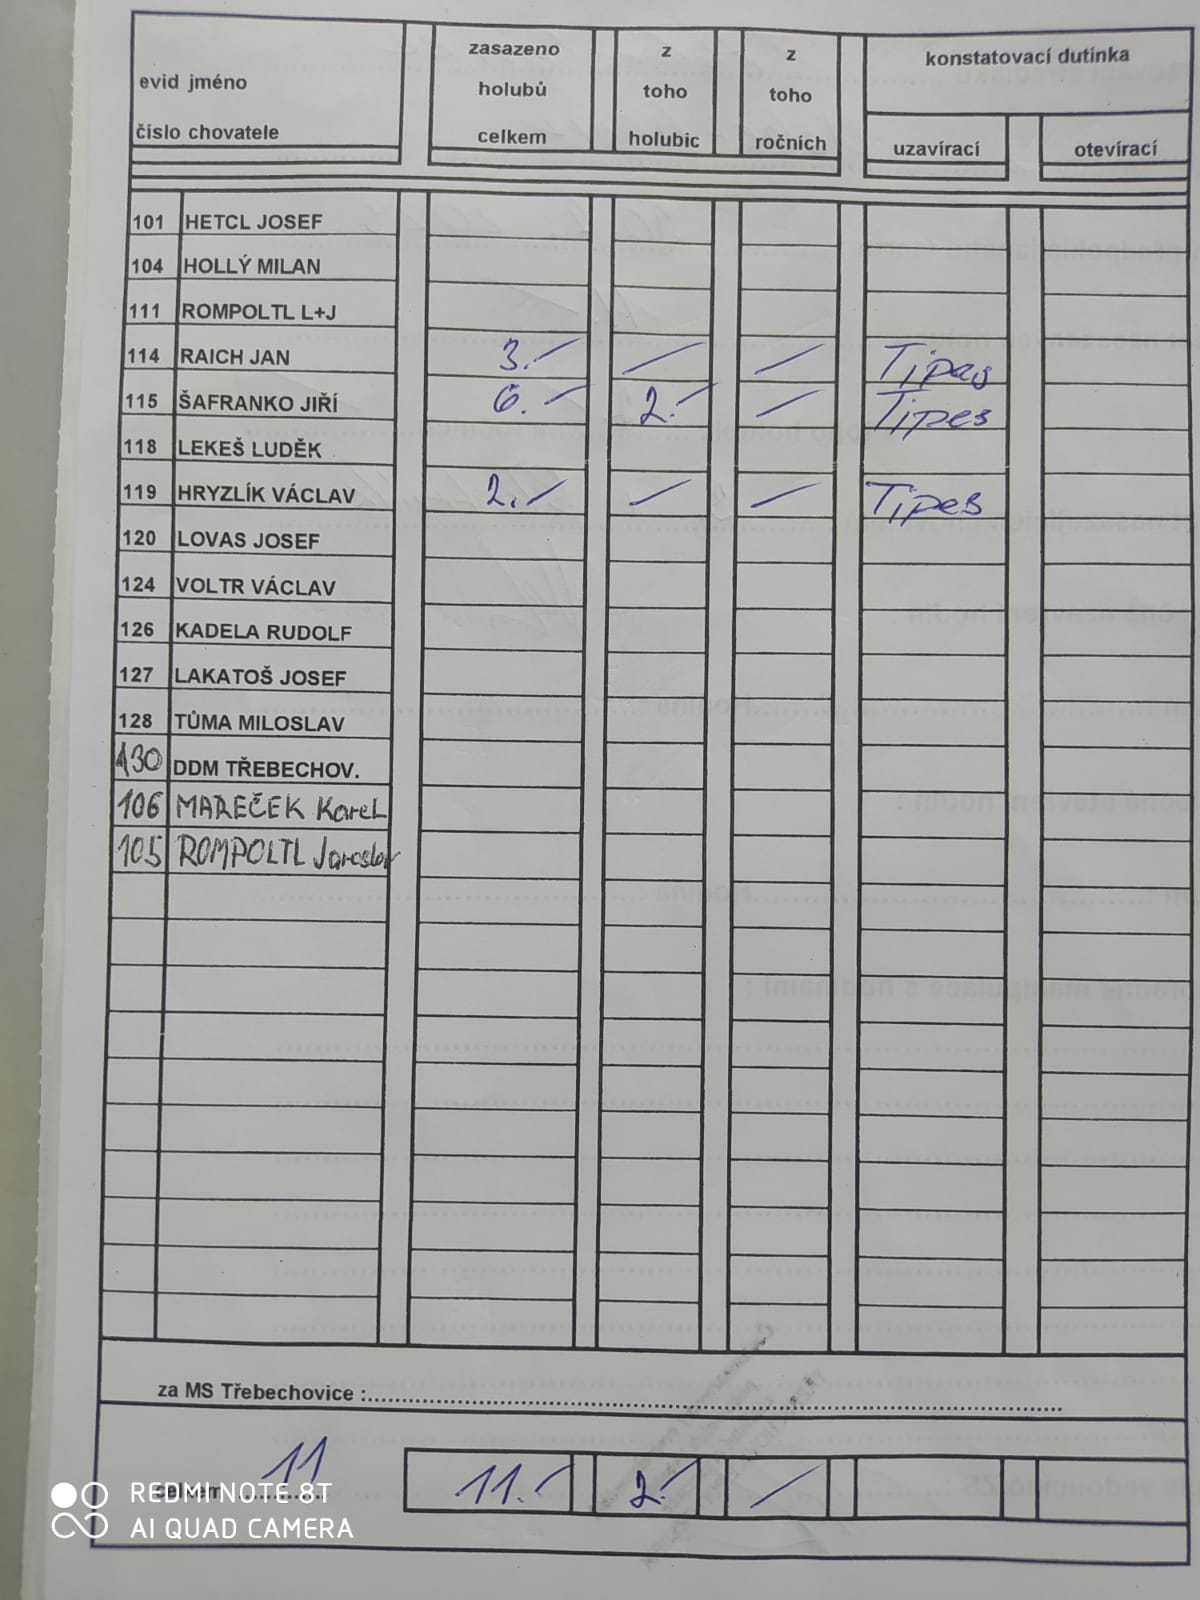 evid jméno
číslo chovatele
zasazeno
holubů
celkem
z
toho
holubic
z
toho
ročních
konstatovací dutinka
uzavírací
otevírací
101 HETCL JOSEF
104 HOLLÝ MILAN
111 ROMPOLTL L+J
114 RAICH JAN 3.- / / Tipes
115 ŠAFRANKO JIŘÍ 6.- 2.- / Tipes
118 LEKEŠ LUDĚK
119 HRYZLÍK VÁCLAV 2.- / / Tipes
120 LOVAS JOSEF
124 VOLTR VÁCLAV
126 KADELA RUDOLF
127 LAKATOŠ JOSEF
128 TŮMA MILOSLAV
130 DDM TŘEBECHOV.
106 MAREČEK Karel
105 ROMPOLTL Jaroslav
za MS Třebechovice :
11 11.- 2.- /
REDMI NOTE 8T
AI QUAD CAMERA